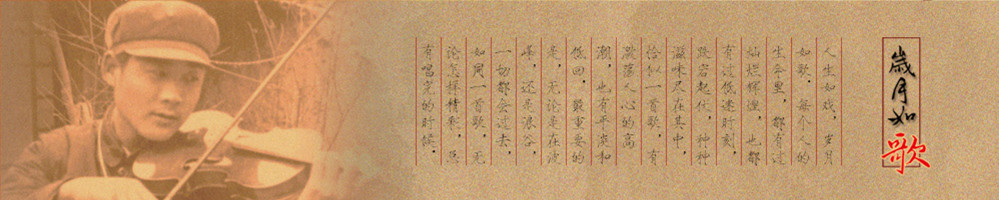 歲月如歌
人生如戏，岁月
如歌，每个人的
生命里，都有过
灿烂辉煌，也都
有过低迷时刻，
跌宕起伏，种种
滋味尽在其中，
恰似一首歌，有
激荡人心的高
潮，也有平淡和
低回，最重要的
是，无论是在波
峰，还是浪谷，
一切都会过去，
如同一首歌，无
论怎样精彩，总
有唱完的时候，